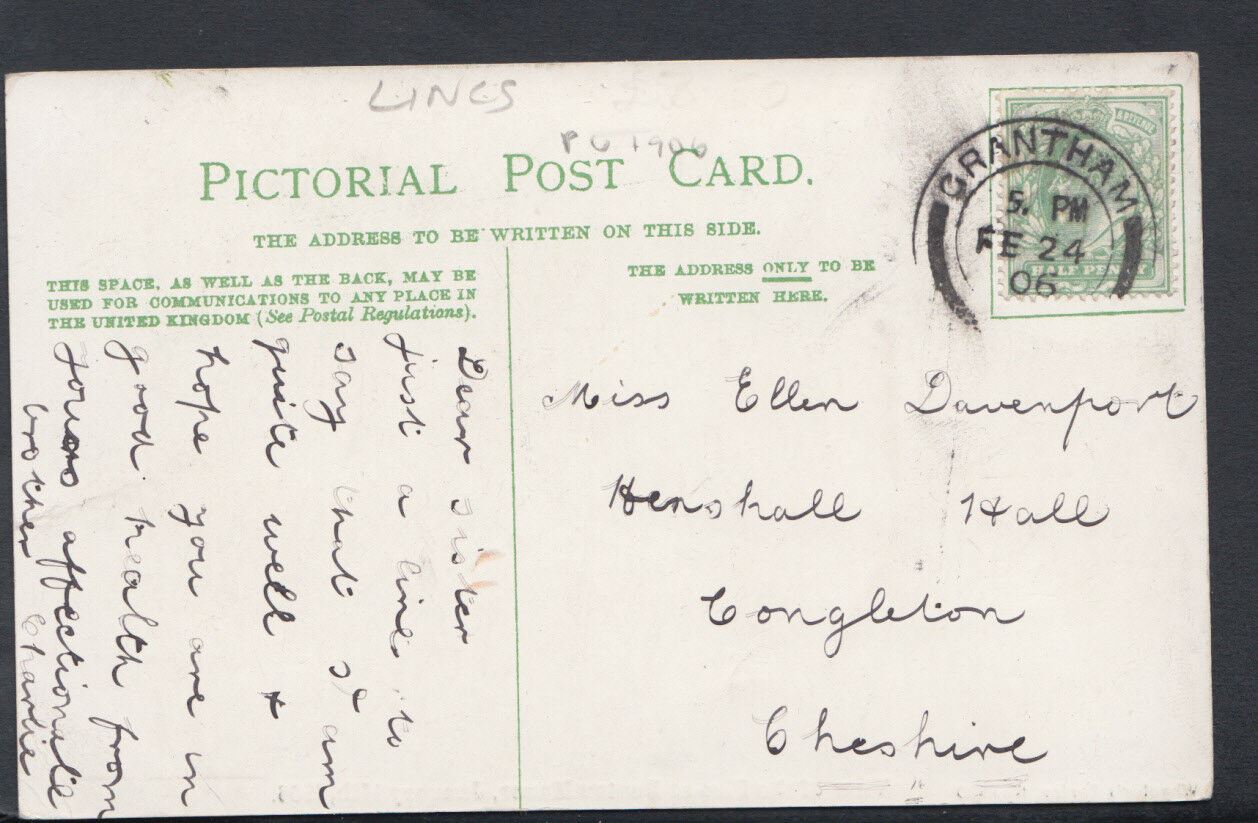 LINCS
PU 1906
PICTORIAL POST CARD.
THE ADDRESS TO BE WRITTEN ON THIS SIDE.
THIS SPACE, AS WELL AS THE BACK, MAY BE
USED FOR COMMUNICATIONS TO ANY PLACE IN
THE UNITED KINGDOM (See Postal Regulations).
THE ADDRESS ONLY TO BE
WRITTEN HERE.
& REVENUE
HALF PENNY
GRANTHAM
5. PM
FE 24
06
Dear Sister
just a line to
say that I am
quite well &
hope you are in
good health from
yours affectionate
brother Charlie
Miss Ellen Davenport
Henshall Hall
Congleton
Cheshire